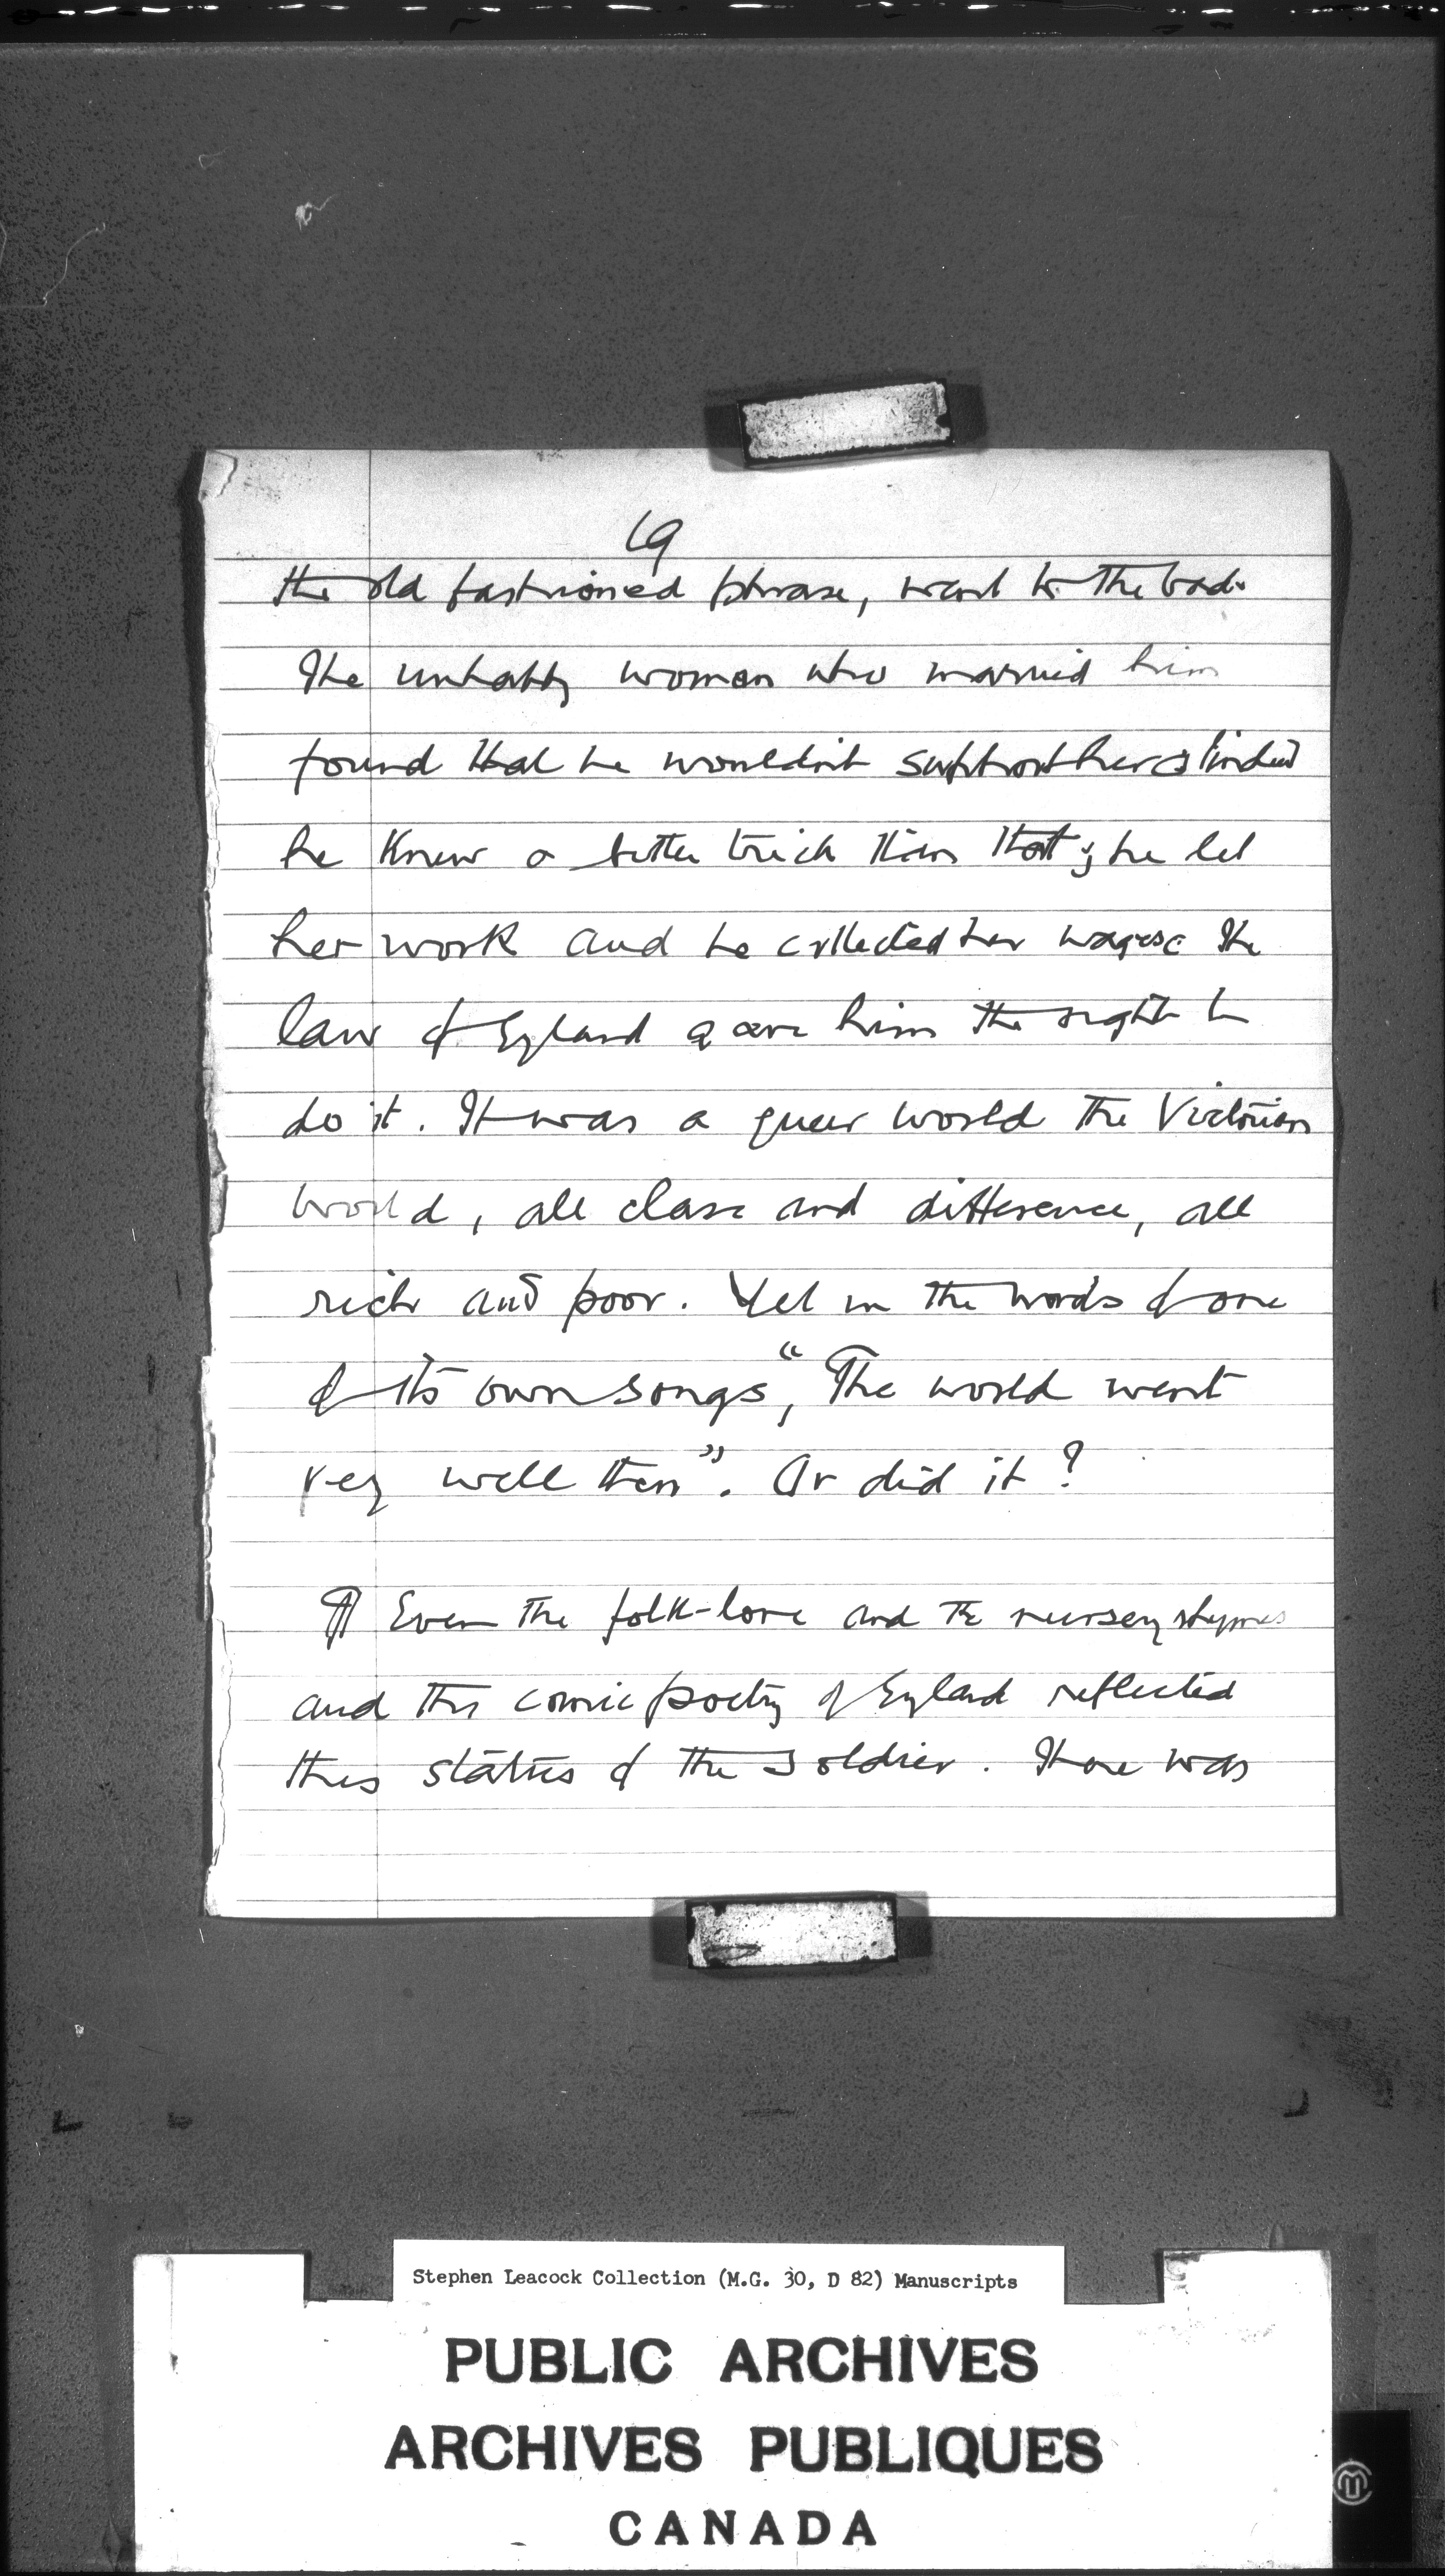 19
the old fashioned phrase, went to the bad.
The unhappy woman who married him
found that he wouldn't support her; indeed
he knew a better trick than that; he let
her work and he collected her wages. The
law of England gave him the right to
do it. It was a queer world the Victorian
world, all class and difference, all
rich and poor. Yet in the words of one
of its own songs, "The world went
very well then". Or did it?
¶ Even the folk-lore and the nursery rhymes
and the comic poetry of England reflected
this status of the soldier. There was
Stephen Leacock Collection (M.G. 30, D 82) Manuscripts
PUBLIC ARCHIVES
ARCHIVES PUBLIQUES
CANADA